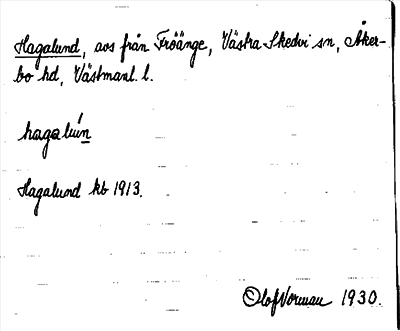 Hagalund, avs från Fröänge, Västra Skedvi sn, Åker-
bo hd, Västmanl. l.
hagalún
Hagalund kb 1913.
Olof Norman 1930.